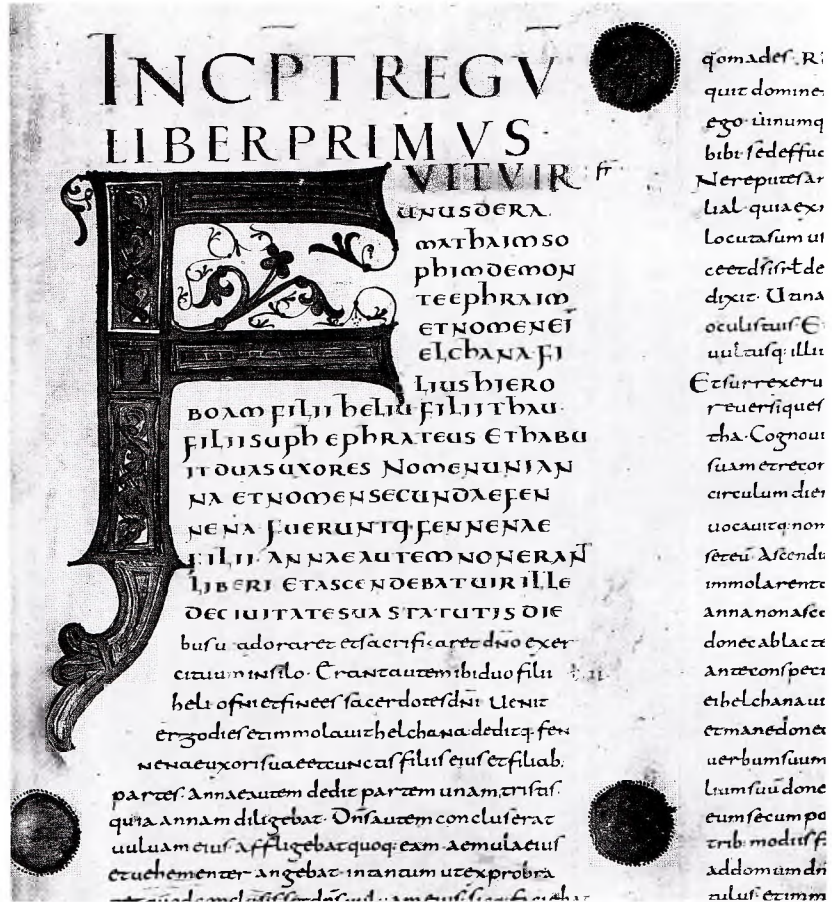 INCPT REGU
LIBER PRIMUS
FUIT UIR
UNUS DE RA
MATHAIM SO
PHIM DE MON
TE EPHRAIM
ET NOMEN EI
ELCHANA FI
LIUS HIERO
BOAM FILII HELIU FILII THAU
FILII SUPH EPHRATEUS ET HABU
IT DUAS UXORES NOMEN UNI AN
NA ET NOMEN SECUNDAE FEN
NENA FUERUNTQ· FENNENAE
FILII· ANNAE AUTEM NON ERAN̄
LIBERI ET ASCENDEBAT UIR ILLE
DE CIUITATE SUA STATUTIS DIE
bus ut adoraret et sacrificaret dn̄o exer
cituum in silo· Erant autem ibi duo filii
heli ofni et finees sacerdotes dn̄i Uenit
ergo dies et immolauit helchana· deditq· fen
nenae uxori suae et cunctis filiis eius et filiab·
partes· Annae autem dedit partem unam tristis·
quia annam diligebat· Dn̄s autem concluserat
uuluam eius affligebat quoq· eam aemula eius
et uehementer angebat· in tantum ut exprobra
qomades· R
quit domine
ego· uinumq
bibi· sed effud
Ne reputes an
lial· quia ex
Locuta sum us
dixit· Utina
oculis tuis· E
uultusq· illi
Et surrexeru
reuersiques
tha· Cognoui
suam et recor
circulum die
uocauitq· nom
Ascendi
immolaret
anna non asce
donec ablacte
ante conspect
et helchana ui
et mane donec
uerbum suum
lium suū done
eum secum po
trib· modiis f
ad domum dn̄
tulus· et imm